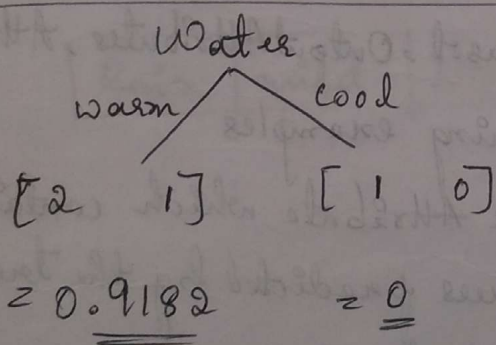 Water
warm cool
[2 1] [1 0]
= 0.9182 = 0